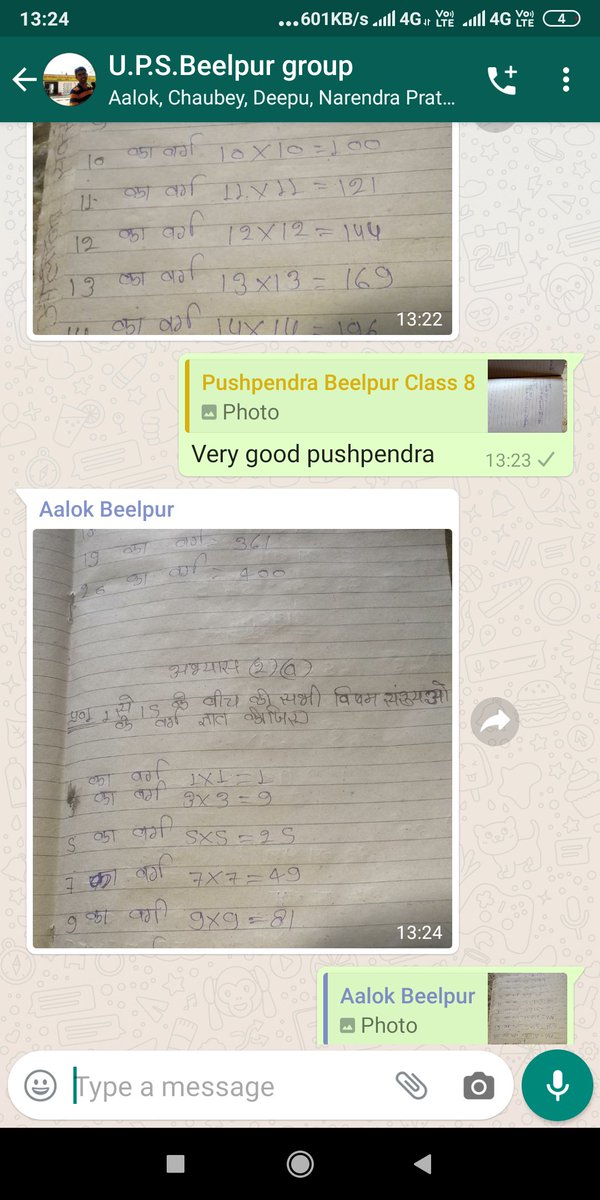 13:24
...601KB/s 4G VoLTE 4G VoLTE 4
U.P.S.Beelpur group
Aalok, Chaubey, Deepu, Narendra Prat...
10 का वर्ग 10×10=100
11 का वर्ग 11×11=121
12 का वर्ग 12×12=144
13 का वर्ग 13×13=169
14 का वर्ग 14×14=196
13:22
Pushpendra Beelpur Class 8
Photo
Very good pushpendra
13:23
Aalok Beelpur
19 का वर्ग = 361
का वर्ग = 400
अभ्यास (2)(a)
1 से 15 के बीच की सभी विषम संख्याओ
के वर्ग ज्ञात कीजिए
का वर्ग 1×1=1
का वर्ग 3×3=9
5 का वर्ग 5×5=25
7 का वर्ग 7×7=49
9 का वर्ग 9×9=81
13:24
Aalok Beelpur
Photo
Type a message